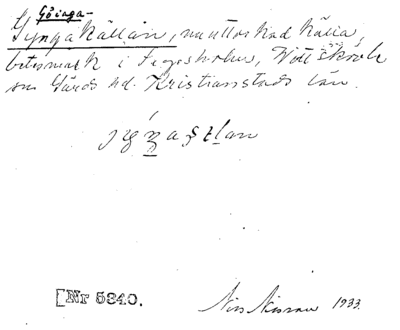 Göinga-
Lyngakällan, muttorkad källa,
betesmark i Segesholm, Vittskövle
sn Gärds hd. Kristianstads län.
[Nr 5340.
Nils Nilsson 1933.